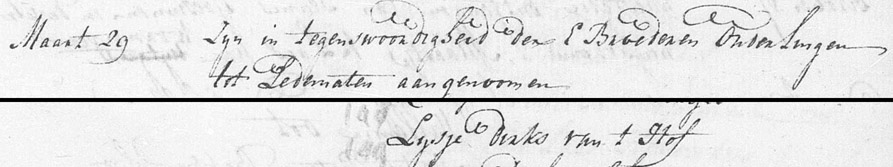 Maart 29 Zyn in tegenswoordigheid der E Broederen Ouderlingen
tot Ledematen aangenoomen
Lysje Dirks van t Hof